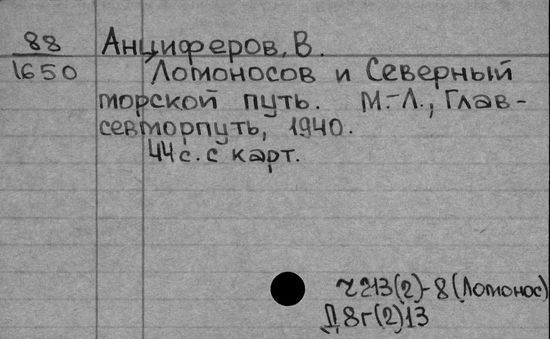 88 Анциферов, В.
1650 Ломоносов и Северный
морской путь. М.-Л., Глав-
севморпуть, 1940.
44 с. с карт.
Ч213(2)-8 (Ломонос)
Д8г(2)13